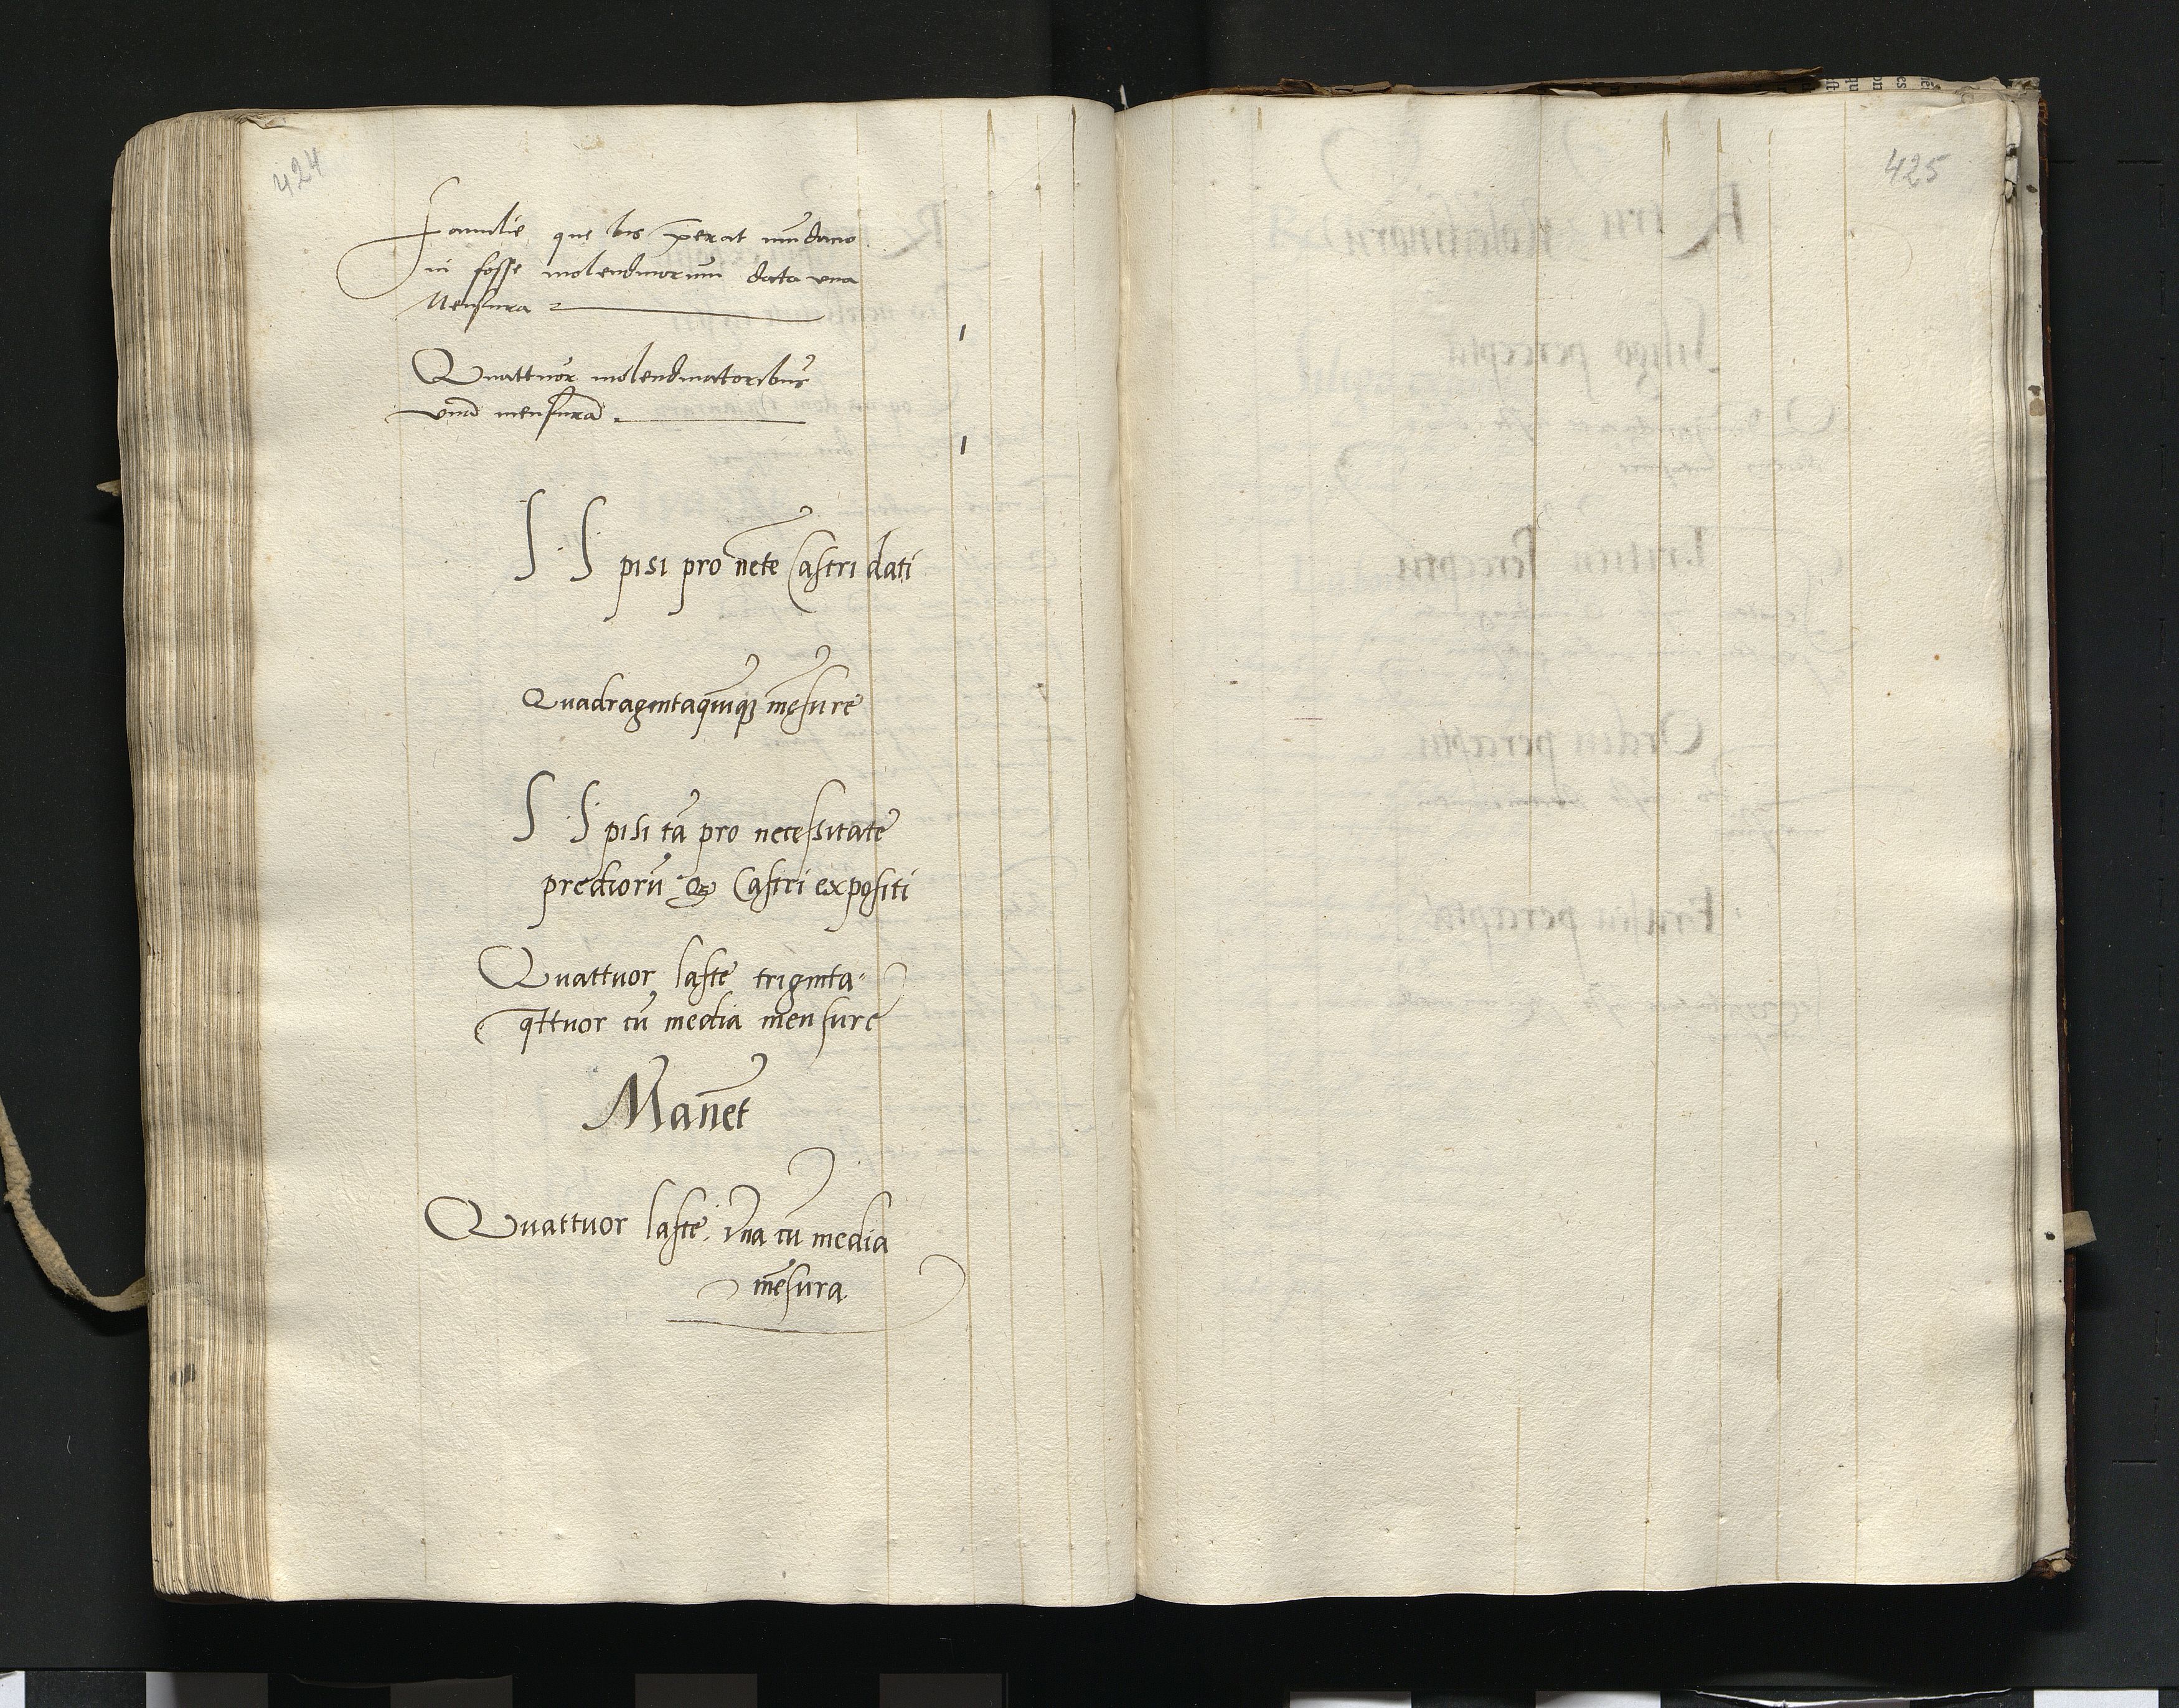 424
Familie que bis operat mūdano
in fosse molendinorum data vna
Mensura
1
Quattuor molendinatoribus
vnā mensurā
1
S S pisi pro nēte Castri dati
Quadragintaquīqȝ mēsure
S S pisi tā pro necessitate
prediorū qȝ Castri expositi
Quattuor laste triginta-
qttuor cū media mensure
Manēt
Quattuor laste vna cū media
mēsura
425